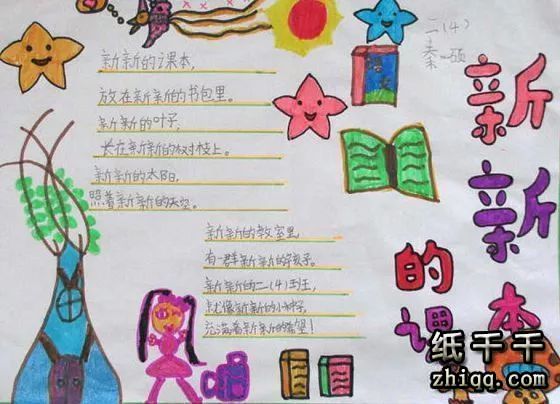 二(4)
秦一硕
新新的课本
新新的课本,
放在新新的书包里。
新新的叶子,
长在新新的树枝上。
新新的太阳,
照着新新的天空。
新新的教室里
有一群新新的孩子。
新新的二(4)班,
就像新新的小种子,
充满着新新的希望!
纸千千
zhiqq.com